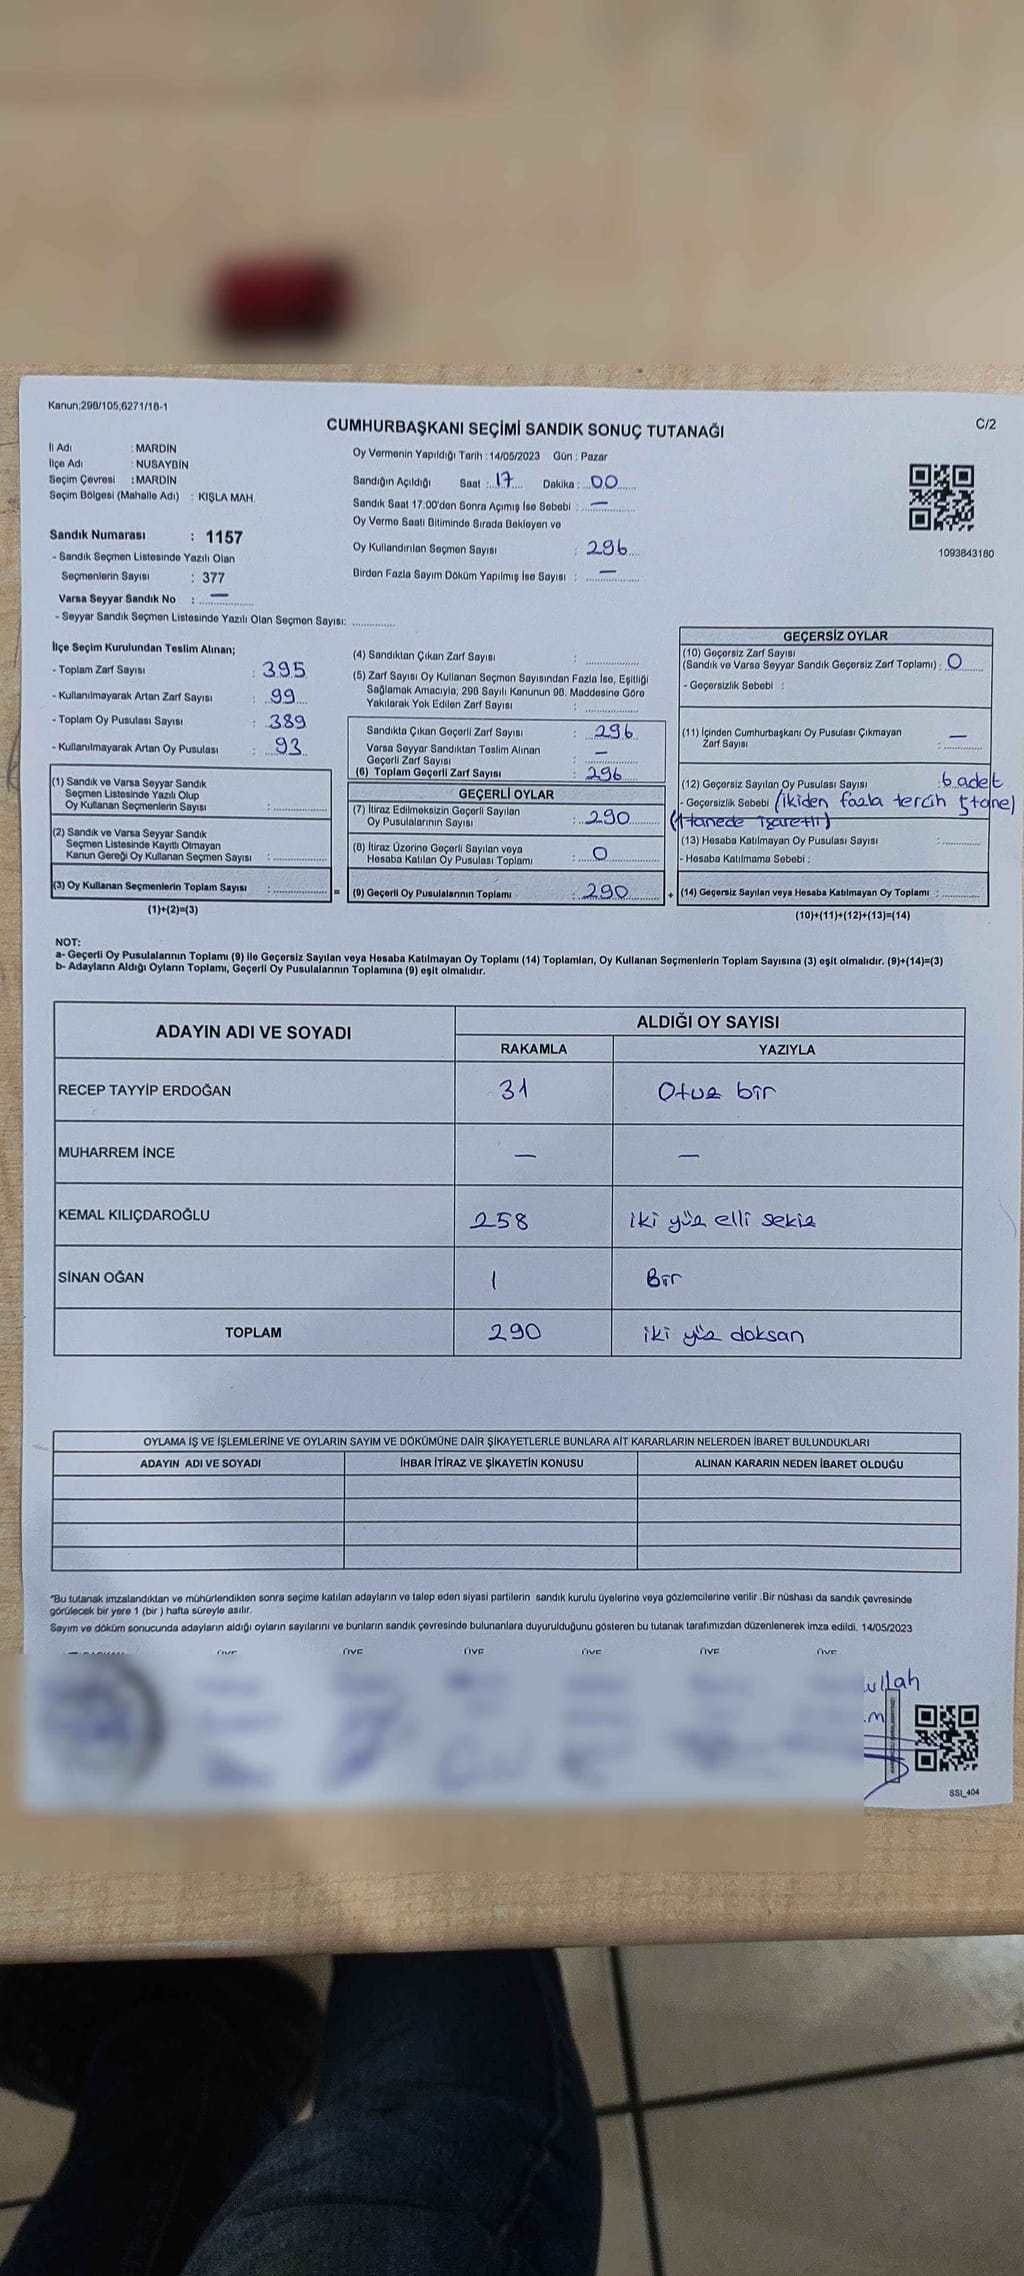 Kanun;298/105,6271/18-1
CUMHURBAŞKANI SEÇİMİ SANDIK SONUÇ TUTANAĞI
C/2
İl Adı : MARDİN
İlçe Adı : NUSAYBİN
Seçim Çevresi : MARDİN
Seçim Bölgesi (Mahalle Adı) : KIŞLA MAH.
Sandık Numarası : 1157
- Sandık Seçmen Listesinde Yazılı Olan
Seçmenlerin Sayısı : 377
Varsa Seyyar Sandık No : —
- Seyyar Sandık Seçmen Listesinde Yazılı Olan Seçmen Sayısı:
Oy Vermenin Yapıldığı Tarih : 14/05/2023 Gün : Pazar
Sandığın Açıldığı Saat : 17 Dakika : 00
Sandık Saat 17:00'den Sonra Açımış İse Sebebi : —
Oy Verme Saati Bitiminde Sırada Bekleyen ve
Oy Kullandırılan Seçmen Sayısı : 296
Birden Fazla Sayım Döküm Yapılmış İse Sayısı : —
1093843180
İlçe Seçim Kurulundan Teslim Alınan;
- Toplam Zarf Sayısı : 395
- Kullanılmayarak Artan Zarf Sayısı : 99
- Toplam Oy Pusulası Sayısı : 389
- Kullanılmayarak Artan Oy Pusulası : 93
(1) Sandık ve Varsa Seyyar Sandık
Seçmen Listesinde Yazılı Olup
Oy Kullanan Seçmenlerin Sayısı :
(2) Sandık ve Varsa Seyyar Sandık
Seçmen Listesinde Kayıtlı Olmayan
Kanun Gereği Oy Kullanan Seçmen Sayısı :
(3) Oy Kullanan Seçmenlerin Toplam Sayısı : =
(1)+(2)=(3)
(4) Sandıktan Çıkan Zarf Sayısı :
(5) Zarf Sayısı Oy Kullanan Seçmen Sayısından Fazla İse, Eşitliği
Sağlamak Amacıyla; 298 Sayılı Kanunun 98. Maddesine Göre
Yakılarak Yok Edilen Zarf Sayısı :
Sandıkta Çıkan Geçerli Zarf Sayısı : 296
Varsa Seyyar Sandıktan Teslim Alınan
Geçerli Zarf Sayısı : —
(6) Toplam Geçerli Zarf Sayısı : 296
GEÇERLİ OYLAR
(7) İtiraz Edilmeksizin Geçerli Sayılan
Oy Pusulalarının Sayısı : 290
(8) İtiraz Üzerine Geçerli Sayılan veya
Hesaba Katılan Oy Pusulası Toplamı : 0
(9) Geçerli Oy Pusulalarının Toplamı : 290 +
GEÇERSİZ OYLAR
(10) Geçersiz Zarf Sayısı
(Sandık ve Varsa Seyyar Sandık Geçersiz Zarf Toplamı) : 0
- Geçersizlik Sebebi :
(11) İçinden Cumhurbaşkanı Oy Pusulası Çıkmayan
Zarf Sayısı : —
(12) Geçersiz Sayılan Oy Pusulası Sayısı : 6 adet
- Geçersizlik Sebebi (ikiden fazla tercih 5 tane)
(1 tanede işaretli)
(13) Hesaba Katılmayan Oy Pusulası Sayısı :
- Hesaba Katılmama Sebebi :
(14) Geçersiz Sayılan veya Hesaba Katılmayan Oy Toplamı :
(10)+(11)+(12)+(13)=(14)
NOT:
a- Geçerli Oy Pusulalarının Toplamı (9) ile Geçersiz Sayılan veya Hesaba Katılmayan Oy Toplamı (14) Toplamları, Oy Kullanan Seçmenlerin Toplam Sayısına (3) eşit olmalıdır. (9)+(14)=(3)
b- Adayların Aldığı Oyların Toplamı, Geçerli Oy Pusulalarının Toplamına (9) eşit olmalıdır.
ADAYIN ADI VE SOYADI
ALDIĞI OY SAYISI
RAKAMLA YAZIYLA
RECEP TAYYİP ERDOĞAN 31 Otuz bir
MUHARREM İNCE — —
KEMAL KILIÇDAROĞLU 258 iki yüz elli sekiz
SİNAN OĞAN 1 Bir
TOPLAM 290 iki yüz doksan
OYLAMA İŞ VE İŞLEMLERİNE VE OYLARIN SAYIM VE DÖKÜMÜNE DAİR ŞİKAYETLERLE BUNLARA AİT KARARLARIN NELERDEN İBARET BULUNDUKLARI
ADAYIN ADI VE SOYADI İHBAR İTİRAZ VE ŞİKAYETİN KONUSU ALINAN KARARIN NEDEN İBARET OLDUĞU
*Bu tutanak imzalandıktan ve mühürlendikten sonra seçime katılan adayların ve talep eden siyasi partilerin sandık kurulu üyelerine veya gözlemcilerine verilir .Bir nüshası da sandık çevresinde
görülecek bir yere 1 (bir ) hafta süreyle asılır.
Sayım ve döküm sonucunda adayların aldığı oyların sayılarını ve bunların sandık çevresinde bulunanlara duyurulduğunu gösteren bu tutanak tarafımızdan düzenlenerek imza edildi. 14/05/2023
ÜYE ÜYE ÜYE ÜYE ÜYE ÜYE
ullah
SSI_404